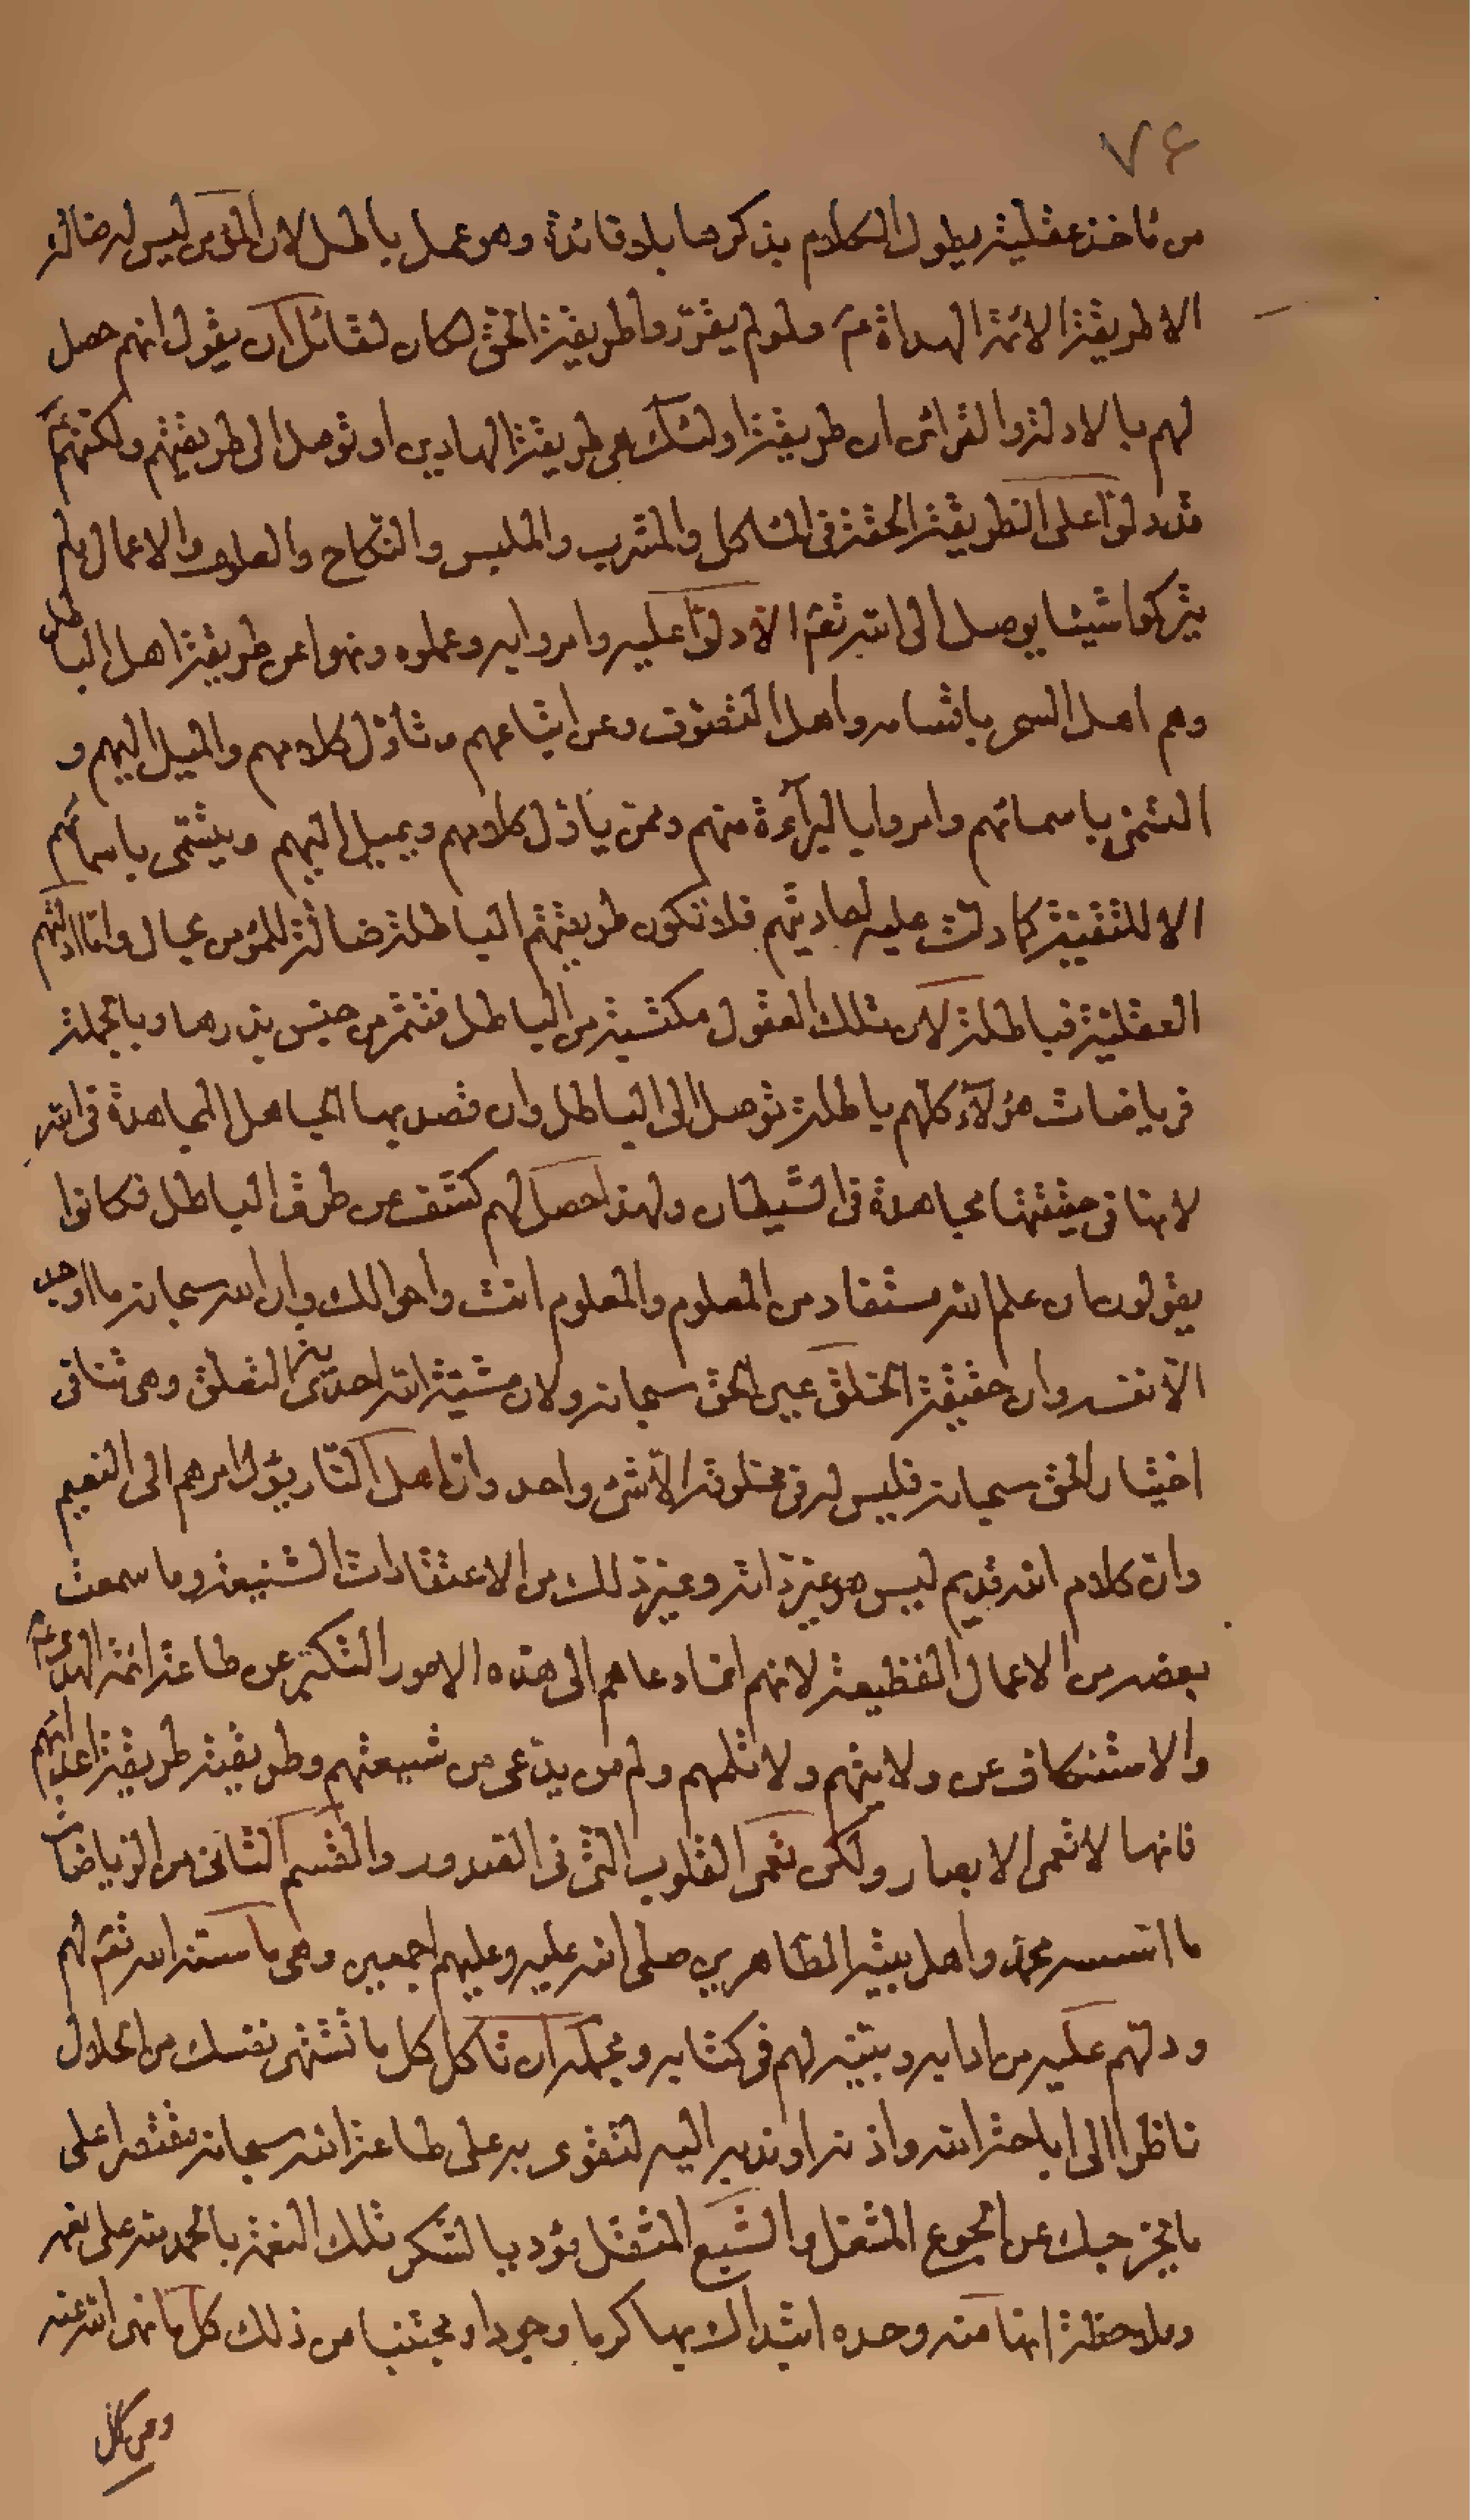 ٧٤
من مآخذ عقلية يطول الكلام بذكرها بلا فائدة وهو عمل باطل لان المؤمن ليس له ضالة
الا طريقة الائمة الهداة عم ولو لم يقرّروا طريقة الحق لكان لقائل ان يقول انهم حصل
لهم بالادلة والقرائن ان طريقة اولئك هى طريقة الهادين او توصل الى طريقتهم ولكنهم
قد دلوا على الطريقة الحقة فى الماكل والمشرب والملبس والنكاح والعلوم والاعمال ولم
يتركوا شيئا يوصل الى الله تعم الا دلوا عليه وامروا به وعملوه ونهوا عن طريقة اهل الباطل
وهم اهل السحر باقسامه واهل التصوف وعن اتباعهم وتأول كلامهم والميل اليهم و
التسمى باسمائهم وامروا بالبرآءة منهم وممن يأول كلامهم ويميل اليهم ويتسمى باسمائهم
الا للتقية كما دلت عليه احاديثهم فلا تكون طريقتهم الباطلة ضالة للمؤمن بحال واما ادلتهم
العقلية فباطلة لان تلك العقول مكتسبة من الباطل فثمر من جنس بذرها وبالجملة
فرياضات هؤلآء كلهم باطلة توصل الى الباطل وان قصد بها الجاهل المجاهدة فى الله
لانها فى حقيقتها مجاهدة فى الشيطان ولهذا حصل لهم كشف عن طرق الباطل فكانوا
يقولون ان علم الله مستفاد من المعلوم والمعلوم انت واحوالك وان الله سبحانه ما اوجد
الا نفسه وان حقيقة الخلق عين الحق سبحانه ولان مشية الله احدية التعلق وهى تنافى
اختيار الحق سبحانه فليس له فى مخلوقه الا شئ واحد وان اهل النار يؤل امرهم الى النعيم
وان كلام الله قديم ليس هو غير ذاته وغير ذلك من الاعتقادات الشنيعة وما سمعت
بعضه من الاعمال الفظيعة لانهم انما دعاهم الى هذه الامور التكبر عن طاعة ائمة الهدى عم
والاستنكاف عن ولايتهم ولا تلمهم ولم من يدعى من شيعتهم وطريقته طريقة اعدائهم
فانها لا تعمى الابصار ولكن تعمى القلوب التى فى الصدور والقسم الثانى من الرياضات
ما اسسه محمد واهل بيته الطاهرين صلى الله عليه وعليهم اجمعين وهى ما سنه الله تعم لهم
ودلهم عليه من ادابه وبينه لهم فى كتابه ومجمله ان تاكل كل ما تشتهى نفسك من الحلال
ناظرا الى اباحة الله واذنه او ندبه اليه لتقوى به على طاعة الله سبحانه مقتصرا على
ما يخرجك عن الجوع المشغل والشبع المثقل مؤديا لشكر تلك النعمة بالحمد لله على نعمه
وملاحظة انها منه وحده ابتداك بها كرما وجودا ومجتنبا من ذلك كل ما نهى الله عنه
ومن كل